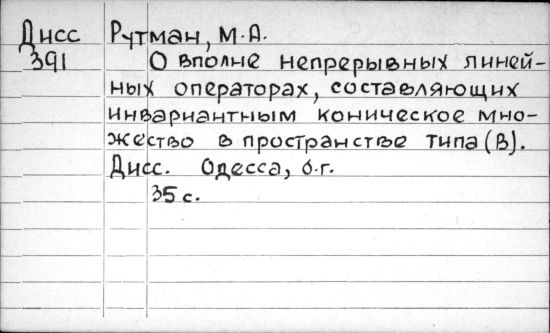 Дисс Рутман, М.А.
391 О вполне непрерывных линей-
ных операторах, составляющих
инвариантным коническое мно-
жество в пространстве типа (В).
Дисс. Одесса, б.г.
35 с.